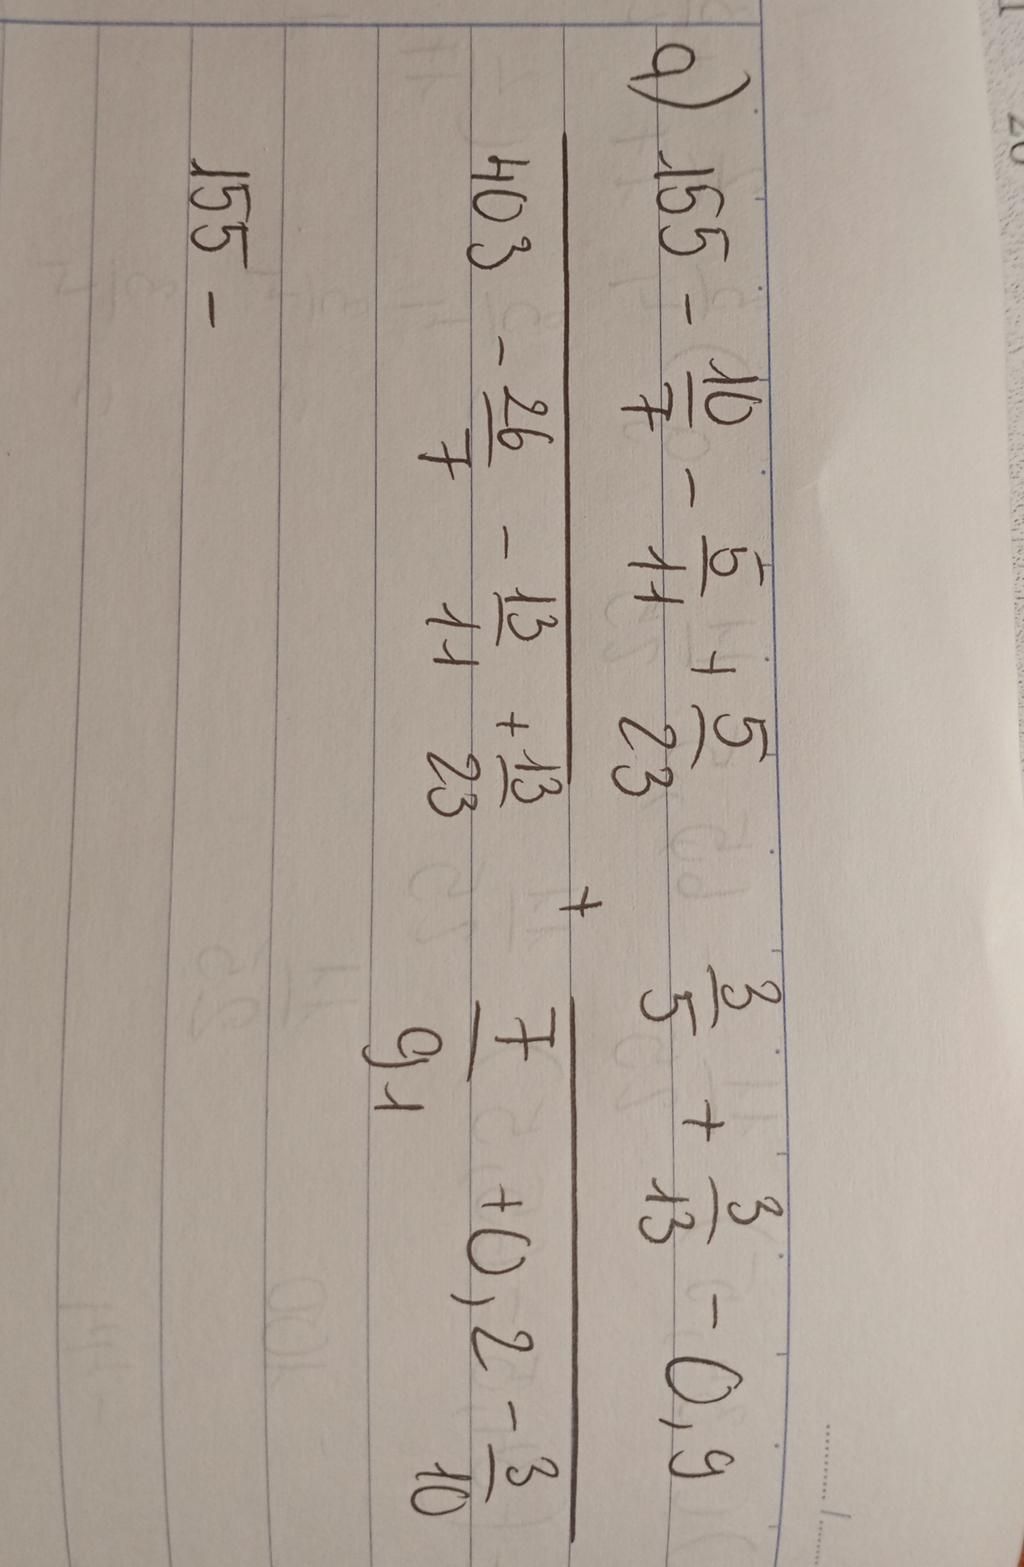 a) 155 - 10/7 - 5/11 + 5/23
403 - 26/7 - 13/11 + 13/23
+
3/5 + 3/13 - 0,9
7/91 + 0,2 - 3/10
155 -